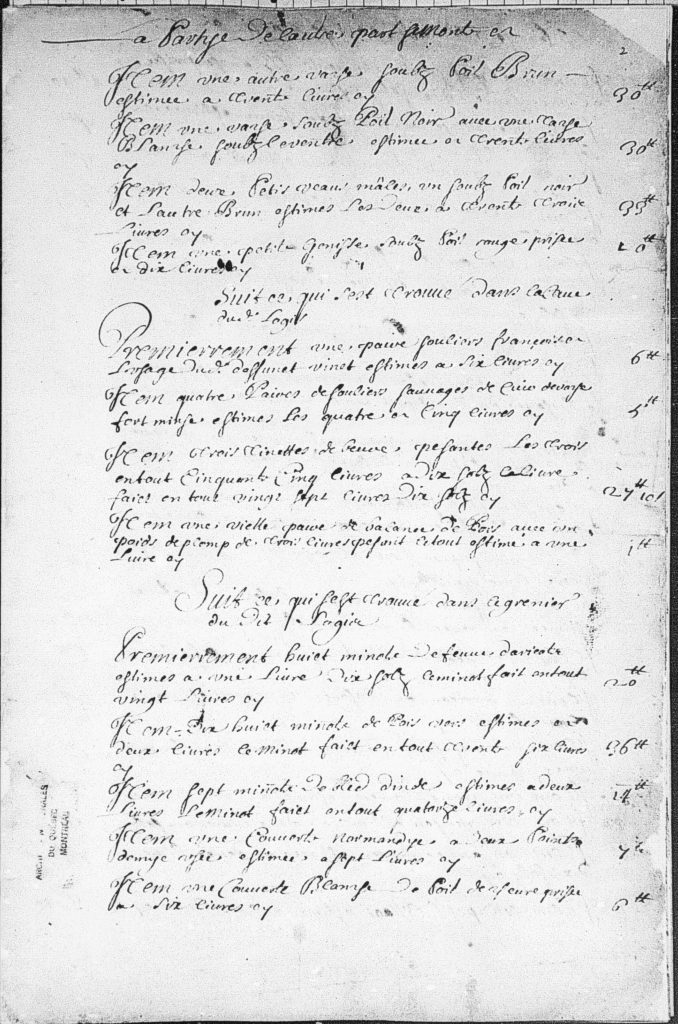 a Partye de lautre part se monte a
2
Item une autre vache soubz Poil Brun
estimee a trente livres cy 30ᵗᵗ
Item une vache soubz Poil Noir avec une tache
Blanche soubz le ventre estimee a trente livres
cy 30ᵗᵗ
Item deux Petis veaux mâles, un soubz Poil noir
et Lautre Brun estimes Les deux a trente trois
Livres cy 33ᵗᵗ
Item une petite genisse soubz Poil rouge prisee
a dix livres cy 10ᵗᵗ
Suit ce qui sest trouvé dans la Cave
dud. Logis
Premierrement une paire souliers françois a
Lusage dud. deffunct estimes a six livres cy 6ᵗᵗ
Item quatre Paires de souliers sauvages de cuir de vache
fort minse estimes Les quatre a Cinq livres cy 5ᵗᵗ
Item trois tinettes de beure pesantes Les trois
en tout Cinquante Cinq livres a dix solz la livre
faict en tout vingt sept livres dix solz cy 27ᵗᵗ 10ˢ
Item une vielle paire de balance de Bois avec un
poids de plomp de trois livres pesant le tout estimé a une
Livre cy 1ᵗᵗ
Suit ce qui sest trouvé dans le grenier
du Dit Logis
Premierrement huict minots de feuve daricots
estimes a une Livre dix solz le minot fait en tout
vingt Livres cy 20ᵗᵗ
Item Dix huict minots de Pois vers estimes a
deux livres le Minot faict en tout trente six livres
cy 36ᵗᵗ
Item sept minots de Bled dinde estimes a deux
Livres Le minot faict en tout quatorze Livres cy 14ᵗᵗ
Item une Couverte Normandye a deux Points
demye usée estimee a sept Livres cy 7ᵗᵗ
Item une Couverte Blanche de Poil de prisee
a six livres cy 6ᵗᵗ
DU QUÉBEC
MONTRÉAL